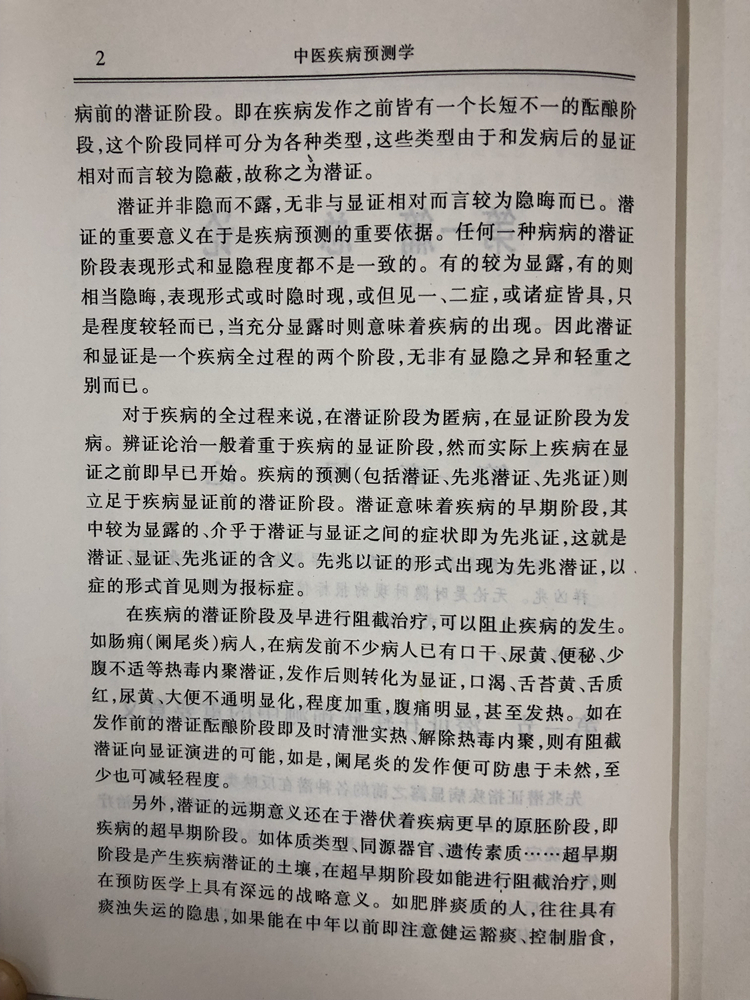 2
中医疾病预测学
病前的潜证阶段。即在疾病发作之前皆有一个长短不一的酝酿阶
段,这个阶段同样可分为各种类型,这些类型由于和发病后的显证
相对而言较为隐蔽,故称之为潜证。
潜证并非隐而不露,无非与显证相对而言较为隐晦而已。潜
证的重要意义在于是疾病预测的重要依据。任何一种病病的潜证
阶段表现形式和显隐程度都不是一致的。有的较为显露,有的则
相当隐晦,表现形式或时隐时现,或但见一、二症,或诸症皆具,只
是程度较轻而已,当充分显露时则意味着疾病的出现。因此潜证
和显证是一个疾病全过程的两个阶段,无非有显隐之异和轻重之
别而已。
对于疾病的全过程来说,在潜证阶段为匿病,在显证阶段为发
病。辨证论治一般着重于疾病的显证阶段,然而实际上疾病在显
证之前即早已开始。疾病的预测(包括潜证、先兆潜证、先兆证)则
立足于疾病显证前的潜证阶段。潜证意味着疾病的早期阶段,其
中较为显露的、介乎于潜证与显证之间的症状即为先兆证,这就是
潜证、显证、先兆证的含义。先兆以证的形式出现为先兆潜证,以
症的形式首见则为报标症。
在疾病的潜证阶段及早进行阻截治疗,可以阻止疾病的发生。
如肠痈(阑尾炎)病人,在病发前不少病人已有口干、尿黄、便秘、少
腹不适等热毒内聚潜证,发作后则转化为显证,口渴、舌苔黄、舌质
红,尿黄、大便不通明显化,程度加重,腹痛明显,甚至发热。如在
发作前的潜证酝酿阶段即及时清泄实热、解除热毒内聚,则有阻截
潜证向显证演进的可能,如是,阑尾炎的发作便可防患于未然,至
少也可减轻程度。
另外,潜证的远期意义还在于潜伏着疾病更早的原胚阶段,即
疾病的超早期阶段。如体质类型、同源器官、遗传素质……超早期
阶段是产生疾病潜证的土壤,在超早期阶段如能进行阻截治疗,则
在预防医学上具有深远的战略意义。如肥胖痰质的人,往往具有
痰浊失运的隐患,如果能在中年以前即注意健运豁痰、控制脂食,